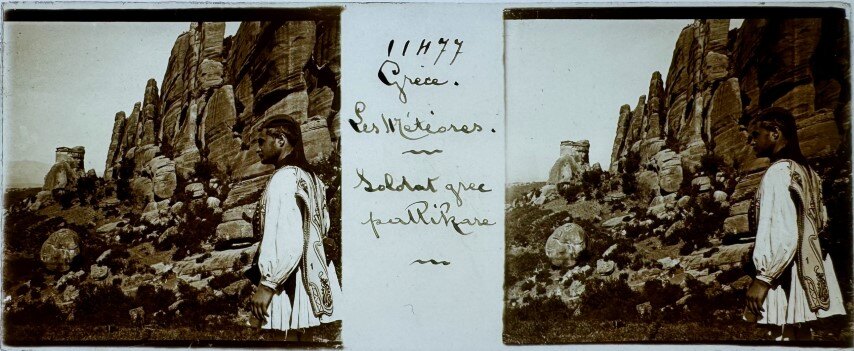 11477
Grèce.
Les Météores.
Soldat grec
pallikare